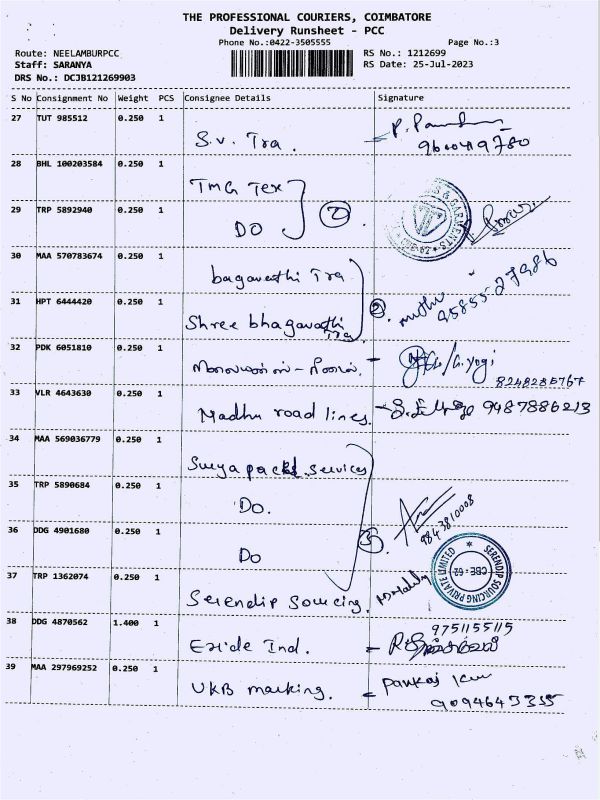 THE PROFESSIONAL COURIERS, COIMBATORE
Delivery Runsheet - PCC
Phone No.:0422-3505555 Page No.:3
Route: NEELAMBURPCC RS No.: 1212699
Staff: SARANYA RS Date: 25-Jul-2023
DRS No.: DCJB121269903
S No Consignment No Weight PCS Consignee Details Signature
27 TUT 985512 0.250 1 S.V. Tra.
9600419780
28 BHL 100203584 0.250 1 TMG Tex
29 TRP 5892940 0.250 1 DO 2
30 MAA 570783674 0.250 1 bagavathi Tra
95855 27986
31 HPT 6444420 0.250 1 Shree bhagavathi Tra 2 muthu
32 PDK 6051810 0.250 1 G.yogi
8248285767
33 VLR 4643630 0.250 1 Madhu road lines. 9487886213
34 MAA 569036779 0.250 1 Surya pack services
35 TRP 5890684 0.250 1 Do.
9843810008
36 DDG 4901680 0.250 1 Do 3
SERENDIP SOURCING PRIVATE LIMITED
CBE-62
37 TRP 1362074 0.250 1 Serendip Sourcing.
38 DDG 4870562 1.400 1 Exide Ind. 9751155115
39 MAA 297969252 0.250 1 UKB marking. Pankaj
9094643355